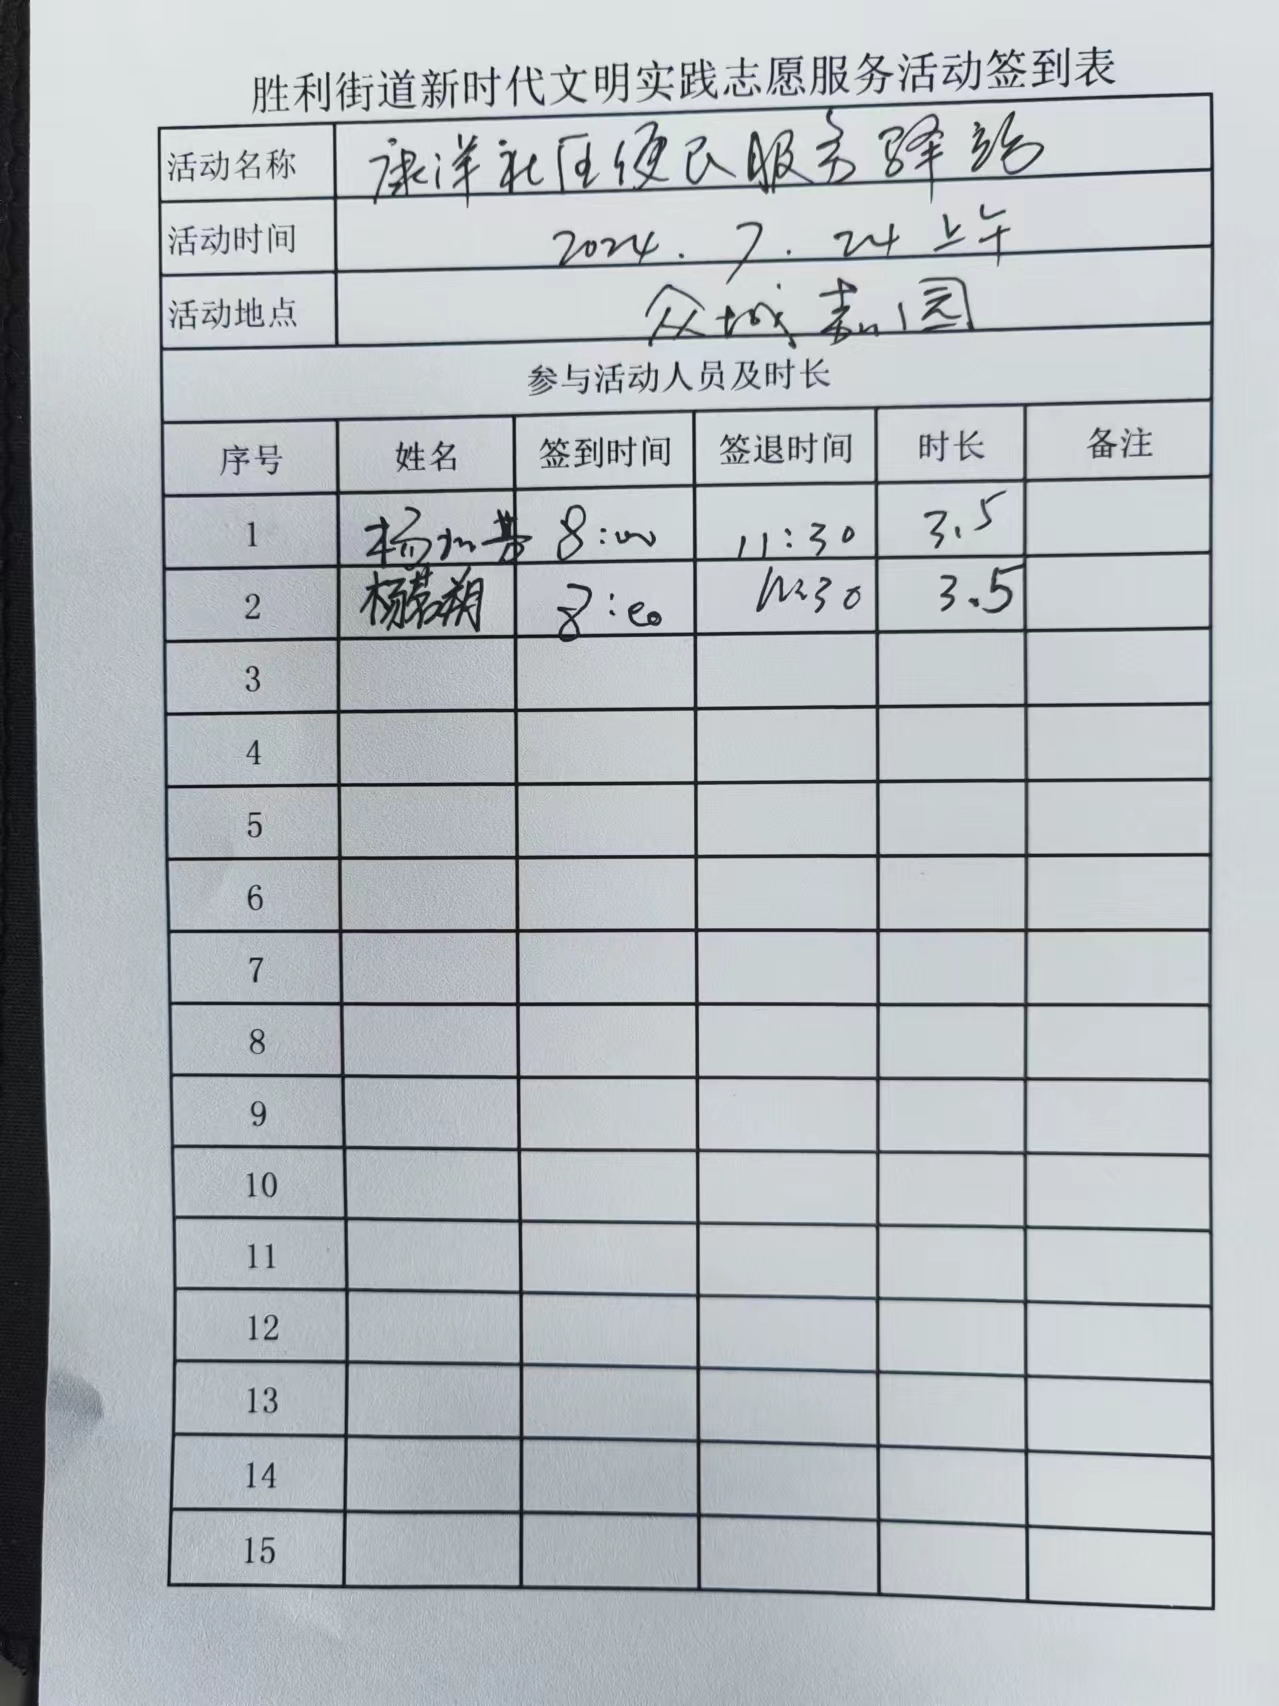 胜利街道新时代文明实践志愿服务活动签到表
活动名称 康洋社区便民服务驿站
活动时间 2024.7.24上午
活动地点 众城嘉园
参与活动人员及时长
序号 姓名 签到时间 签退时间 时长 备注
1 杨 8:00 11:30 3.5
2 杨若朔 8:00 11:30 3.5
3
4
5
6
7
8
9
10
11
12
13
14
15